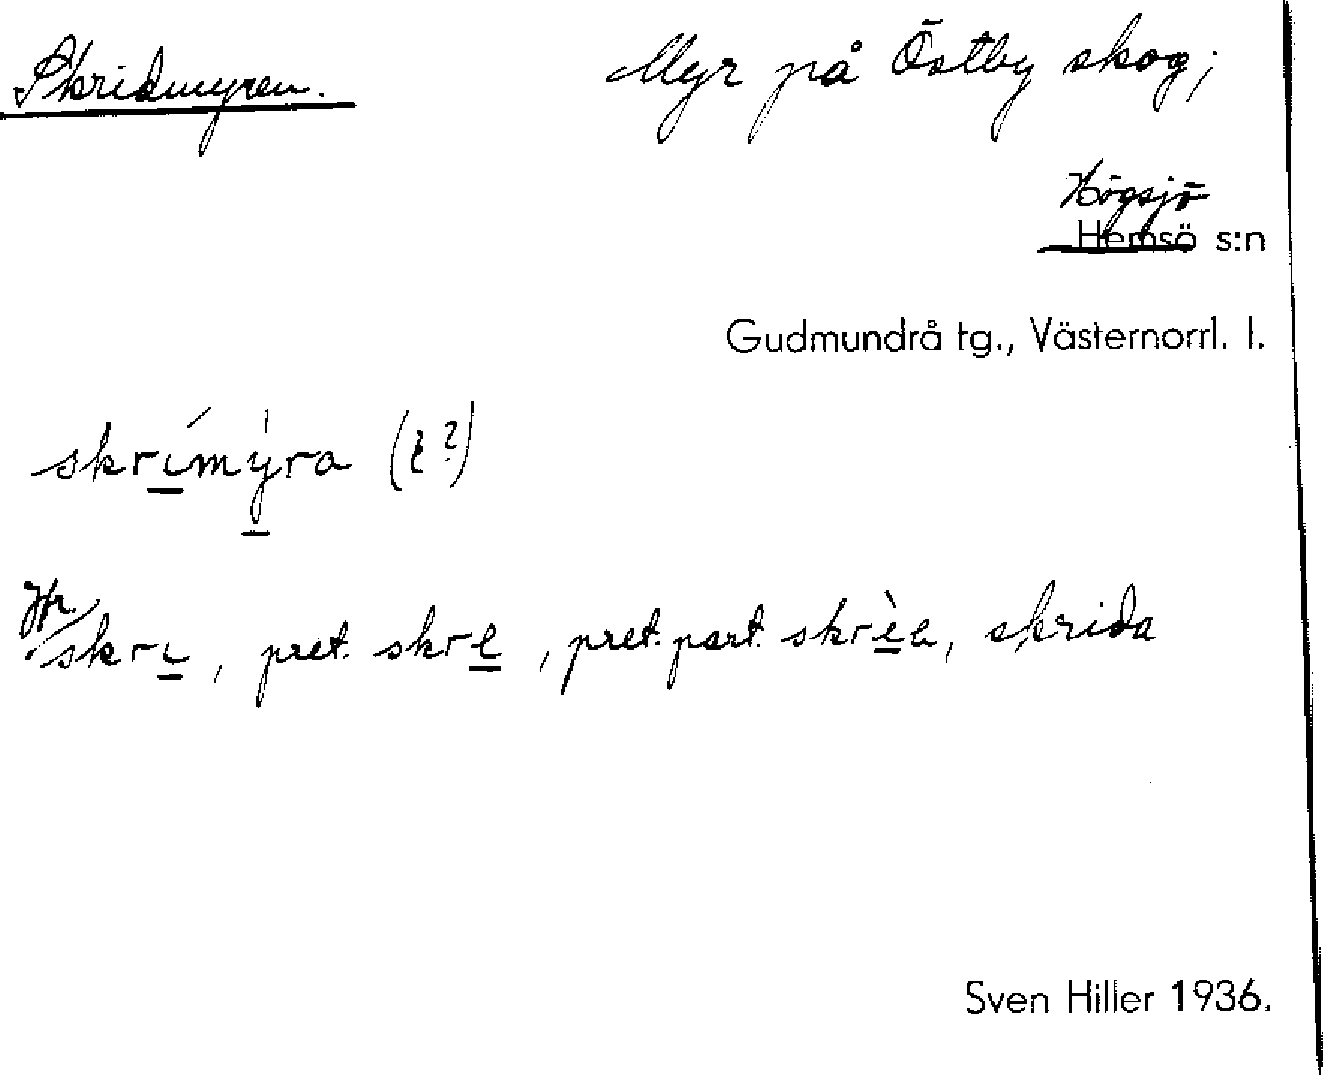 Skridmyren.
Myr på Östby skog;
Högsjö
Hemsö s:n
Gudmundrå tg., Västernorrl. l.
skrímy̍ra (ɩ?)
Jfr
skrɩ, pret. skre, pret.part. skrèa, skrida
Sven Hiller 1936.